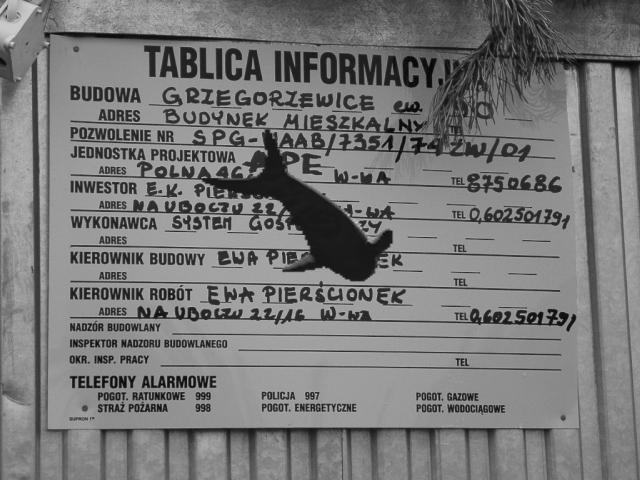 TABLICA INFORMACYJ
BUDOWA GRZEGORZEWICE ew.
ADRES BUDYNEK MIESZKALNY
POZWOLENIE NR SPG- AAB/7351/74 ZW/01
JEDNOSTKA PROJEKTOWA
ADRES POLNA W-WA TEL 8750686
INWESTOR E.K.
ADRES NA UBOCZU 22/ W-WA TEL 0,602501791
WYKONAWCA SYSTEM
ADRES TEL
KIEROWNIK BUDOWY EWA
ADRES TEL
KIEROWNIK ROBÓT EWA PIERŚCIONEK
ADRES NA UBOCZU 22/16 W-wa TEL 0,602501791
NADZÓR BUDOWLANY
INSPEKTOR NADZORU BUDOWLANEGO
OKR. INSP. PRACY TEL
TELEFONY ALARMOWE
POGOT. RATUNKOWE 999 POLICJA 997 POGOT. GAZOWE
STRAŻ POŻARNA 998 POGOT. ENERGETYCZNE POGOT. WODOCIĄGOWE